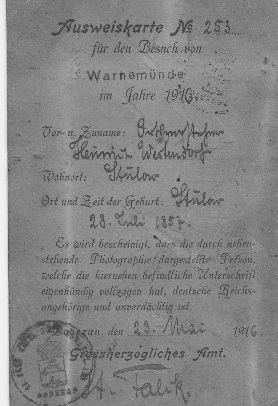 Ausweiskarte № 253
für den Besuch von
Warnemünde
im Jahre 1916.
Vor- u. Zuname:
Heinrich
Wohnort: Stülow
Ort und Zeit der Geburt: Stülow
28. Juli 1857.
Es wird bescheinigt, dass die durch neben-
stehende Photographie dargestellte Person,
welche die hierneben befindliche Unterschrift
eigenhändig vollzogen hat, deutsche Reichs-
angehörige und unverdächtig ist.
Doberan, den 23. Mai 1916.
Grossherzogliches Amt.